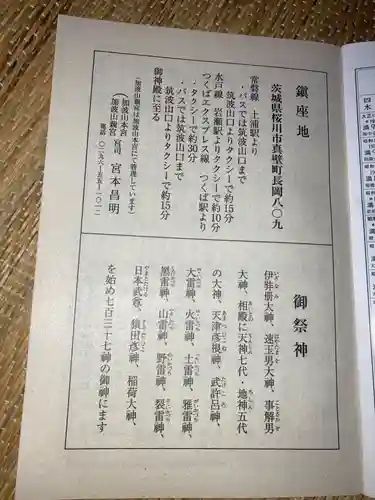 鎮座地
茨城県桜川市真壁町長岡八〇九
常磐線 土浦駅より
・バスでは筑波山口まで
筑波山口よりタクシーで約15分
水戸線 岩瀬駅よりタクシーで約10分
つくばエクスプレス線 つくば駅より
・タクシーで約30分
・バスでは筑波山口まで
筑波山口よりタクシーで約15分
御神殿に至る
(加波山親宮は加波山本宮にて管理しています)
(加波山本宮
加波山親宮) 宮司 宮本昌明
電話 〇二九六-五五-一〇一二
御祭神
伊弉册大神、速玉男大神、事解男
大神、相殿に天神七代・地神五代
の大神、天津彦根神、武許呂神、
大雷神、火雷神、土雷神、雅雷神、
黒雷神、山雷神、野雷神、裂雷神、
日本武尊、猿田彦神、稲荷大神、
を始め七百三十七神の御神にます